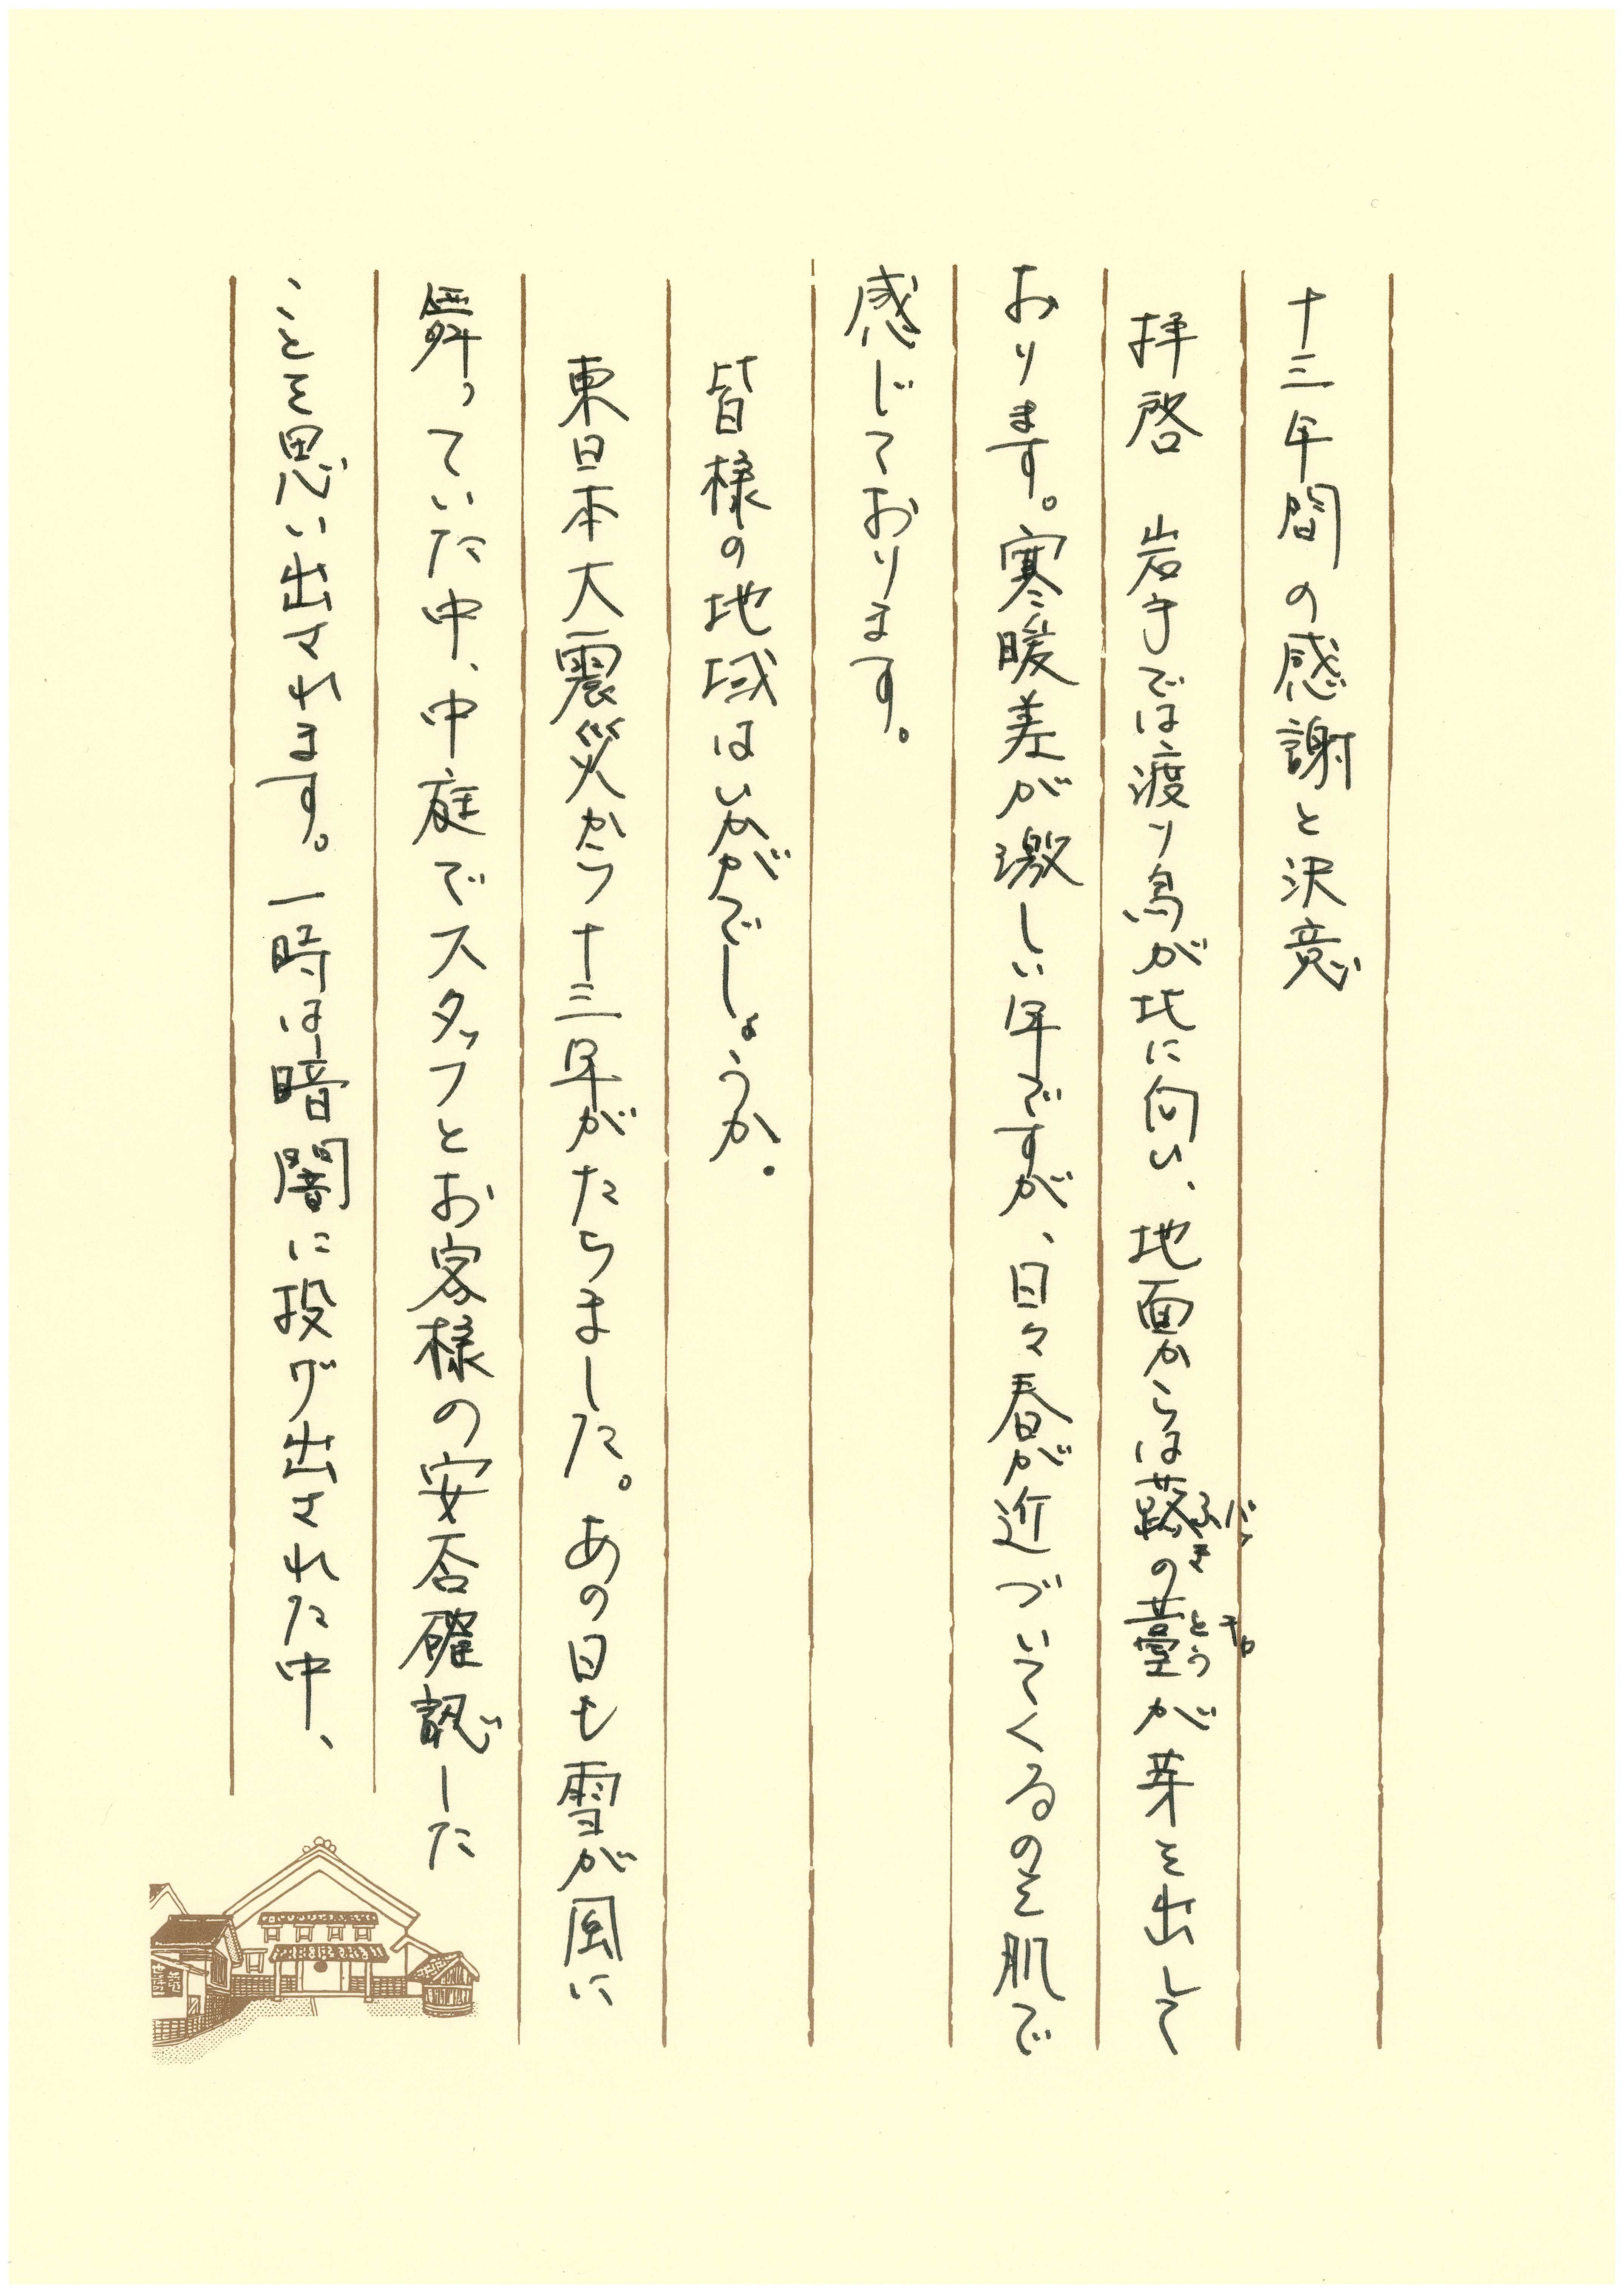 十三年間の感謝と決意
拝啓　岩手では渡り鳥が北に向い、地面からは蕗の薹が芽を出して
ふき
とう
バッ
ケ
おります。寒暖差が激しい年ですが、日々春が近づいてくるのを肌で
感じております。
皆様の地域はいかがでしょうか。
東日本大震災から十三年がたちました。あの日も雪が風に
舞っていた中、中庭でスタッフとお客様の安否確認した
ことを思い出されます。一時は暗闇に投げ出された中、